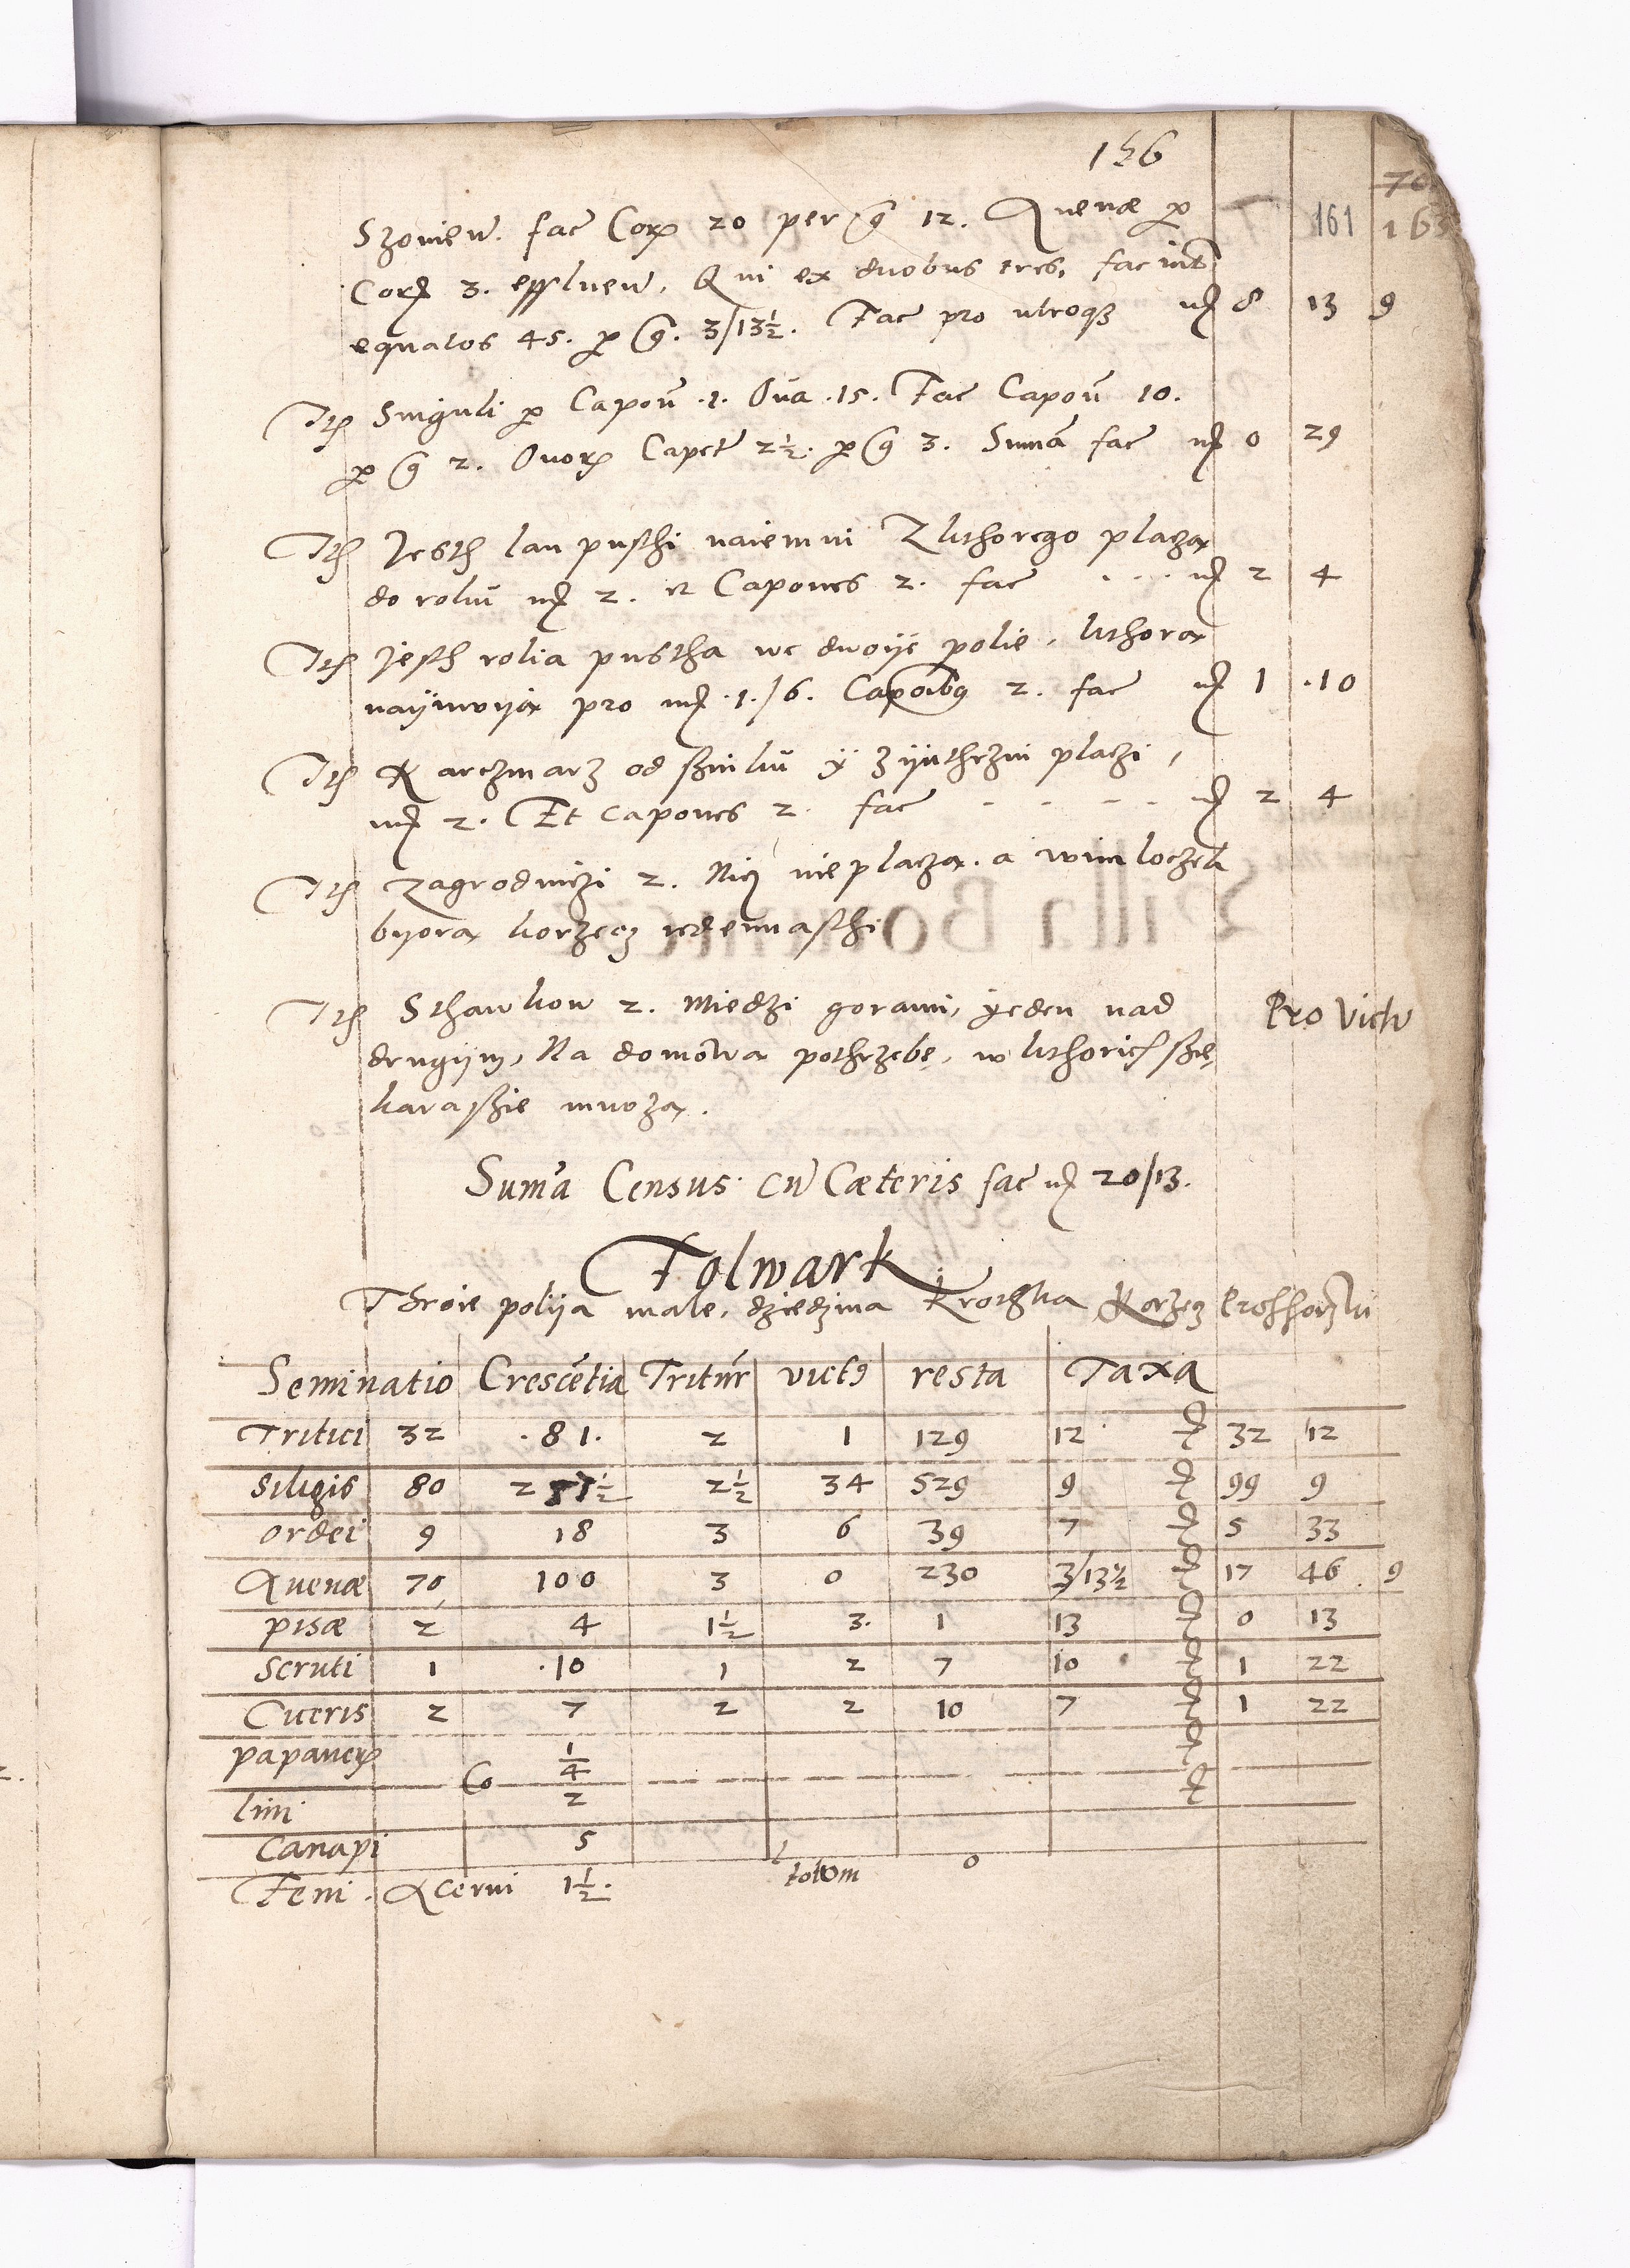 156
161
163
Szoniew. fac Cor 20 per g 12. Auenæ p
Cor 3. effluen. Qui ex duobus tres, faciunt
equatos 45. p g. 3/13½. Fac pro utroq m 8 13 9
Ith Singuli p Capoū .1. Oūa .15. Fac Capoū 10.
p g 2. Ouor Capet 2½. p g 3. Sumā fac m 0 29
Ith Jesth lan pusthi naiemni Z kthorego placza
do roku m 2. et Capones 2. fac . . . m 2 4
Ith Jesth rolia pustha we dwoije polie, kthora
naijmuija pro m .1./6. Capoibg 2. fac m 1 .10
Ith Karczmarz od szinku y z ijuthrzni placzi,
m 2. Et capones 2. fac - - - - m 2 4
Ith Zagrodniczi 2. Nicz nie placza. a wimloczku
byora korzecz iedennasthi
Ith Sthawkow 2. Miedzi gorami, yeden nad Pro victu
drugijm, Na domowa pothrzebę, w kthorich szię
karaszie mnoza.
Sum̄a Census cū Cæteris fac m 20/13.
Folwark
Throie polija male, dziedzina Krothka Korzecz
Seminatio Crescētia Tritūr victg resta Taxa
Tritici 32 .81. 2 1 129 12 32 12
Siligis 80 2½ 34 529 9 99 9
ordei 9 18 3 6 39 7 5 33
Auenæ 70 100 3 0 230 3/13½ 17 46 9
pisæ 2 4 1½ 3. 1 13 0 13
Scruti 1 .10 1 2 7 10 1 22
Ciceris 2 7 2 2 10 7 1 22
papauer Co ¼
lini 2
Canapi 5
Feni. Acerui 1½. totom 0